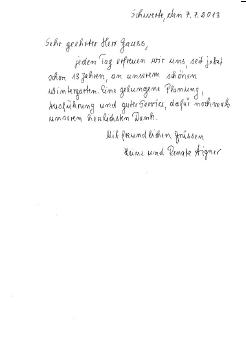 Schwerte, den 7.7.2013
Sehr geehrter Herr Gauss,
jeden Tag erfreuen wir uns, seit jetzt
schon 13 Jahren, an unserem schönen
Wintergarten. Eine gelungene Planung,
Ausführung und guter Service, dafür nochmals
unseren herzlichsten Dank.
Mit freundlichen Grüssen
und Renate Aigner